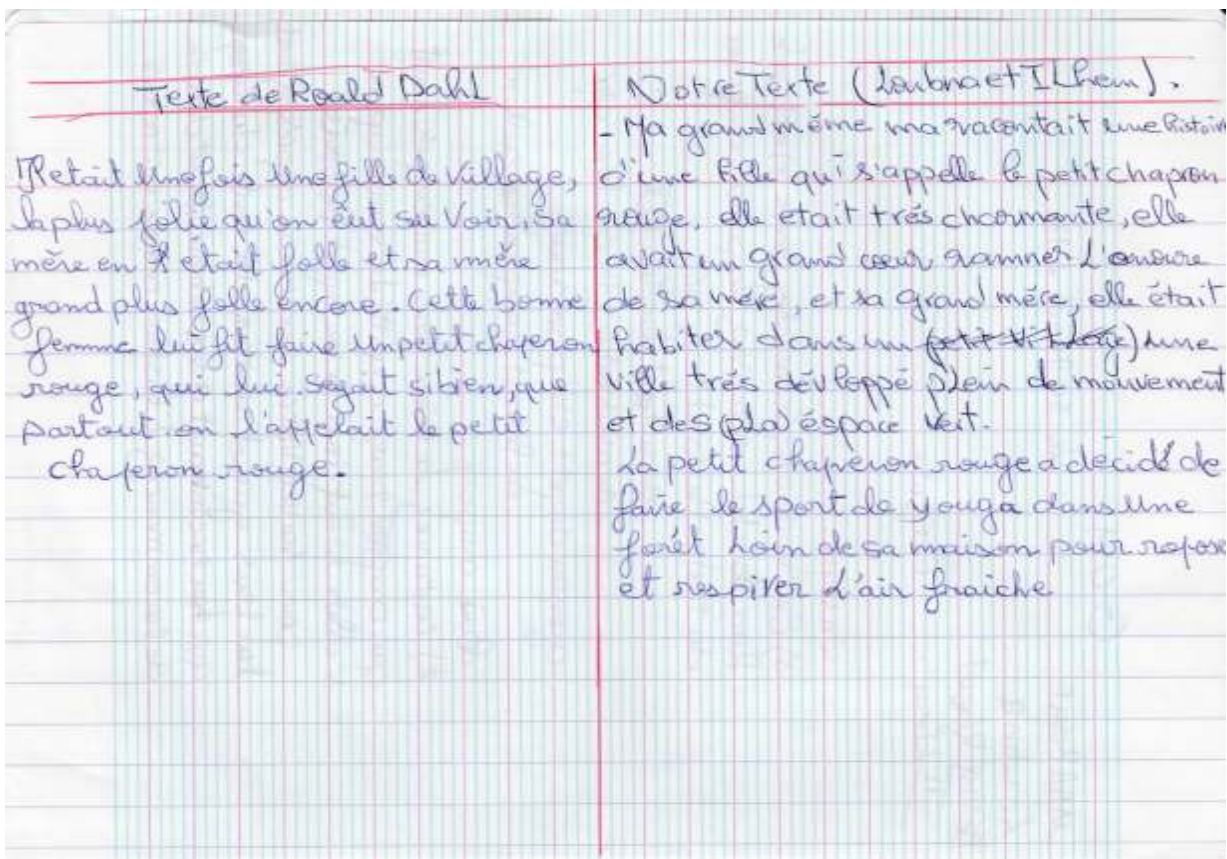 Texte de Roald Dahl
Il etait Une fois Une fille de Village,
la plus jolie qu'on eut su Voir, Sa
mère en était folle et sa mère
grand plus folle encore. Cette bonne
femme lui fit faire Un petit chaperon
rouge, qui lui seyait si bien, que
partout on l'appelait le petit
chaperon rouge.
Notre Texte (Loubna et ILhem).
- Ma grand même ma racontait une histoire
d'une fille qui s'appelle le petit chapron
rouge, elle etait trés charmante, elle
avait un grand cœur ramner L'amoure
de sa mére, et sa grand mére, elle était
habiter dans un (petit village) une
ville trés dévloppé plein de mouvement
et des (pla) éspace vert.
La petit chaperon rouge a décidé de
faire le sport de youga dans Une
forét Loin de sa maison pour repose
et respirer L'air fraiche